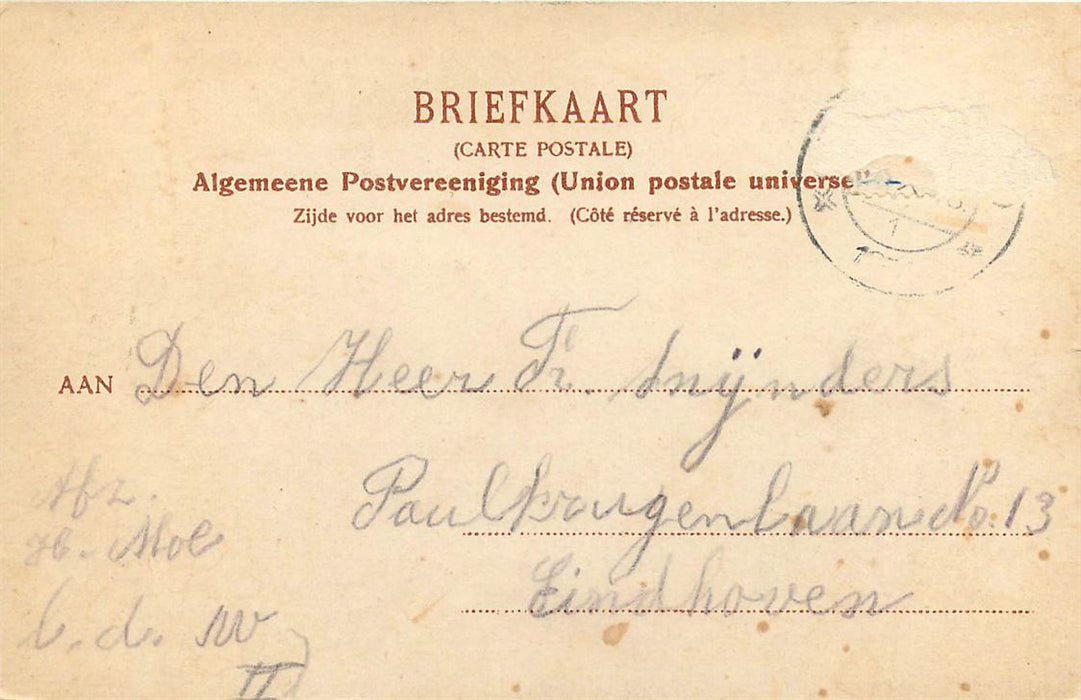 BRIEFKAART
(CARTE POSTALE)
Algemeene Postvereeniging (Union postale universe
Zijde voor het adres bestemd. (Côté réservé à l'adresse.)
1
AAN Den Heer Fr. Snÿnders
Paulkrugenlaan No. 13
Eindhoven
Afz.
H. Mol